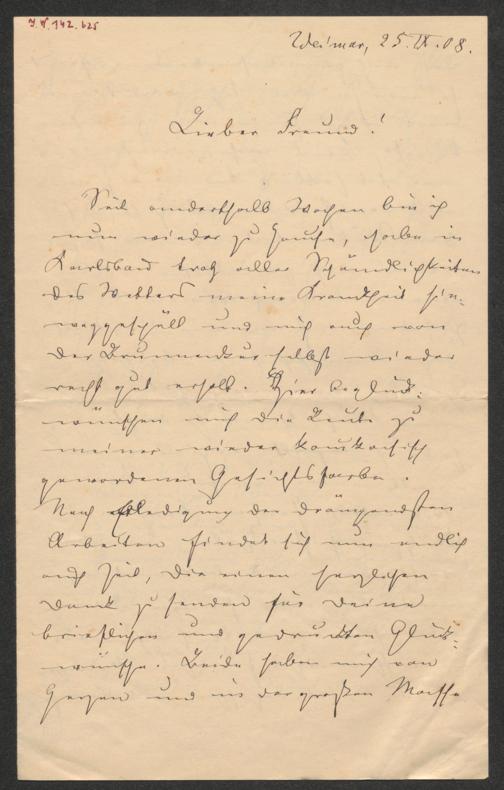 J. N. 142.625
Weimar, 25. IX. 08.
Lieber Freund!
Seit anderthalb Wochen bin ich
nun wieder zu Hause, habe in
Karlsbad trotz aller Schändlichkeiten
des Wetters meine Krankheit hin-
weggespült und mich auch von
der Brunnenkur selbst wieder
recht gut erholt. Hier beglück-
wünschen mich die Leute zu
meiner wieder kaukasisch
gewordenen Gesichtsfarbe.
Nach Erledigung der drängendsten
Arbeiten findet sich nun endlich
auch Zeit, Dir einen herzlichen
Dank zu senden für Deine
brieflichen und gedruckten Glück-
wünsche. Beide haben mich von
Herzen und in der großen Masse